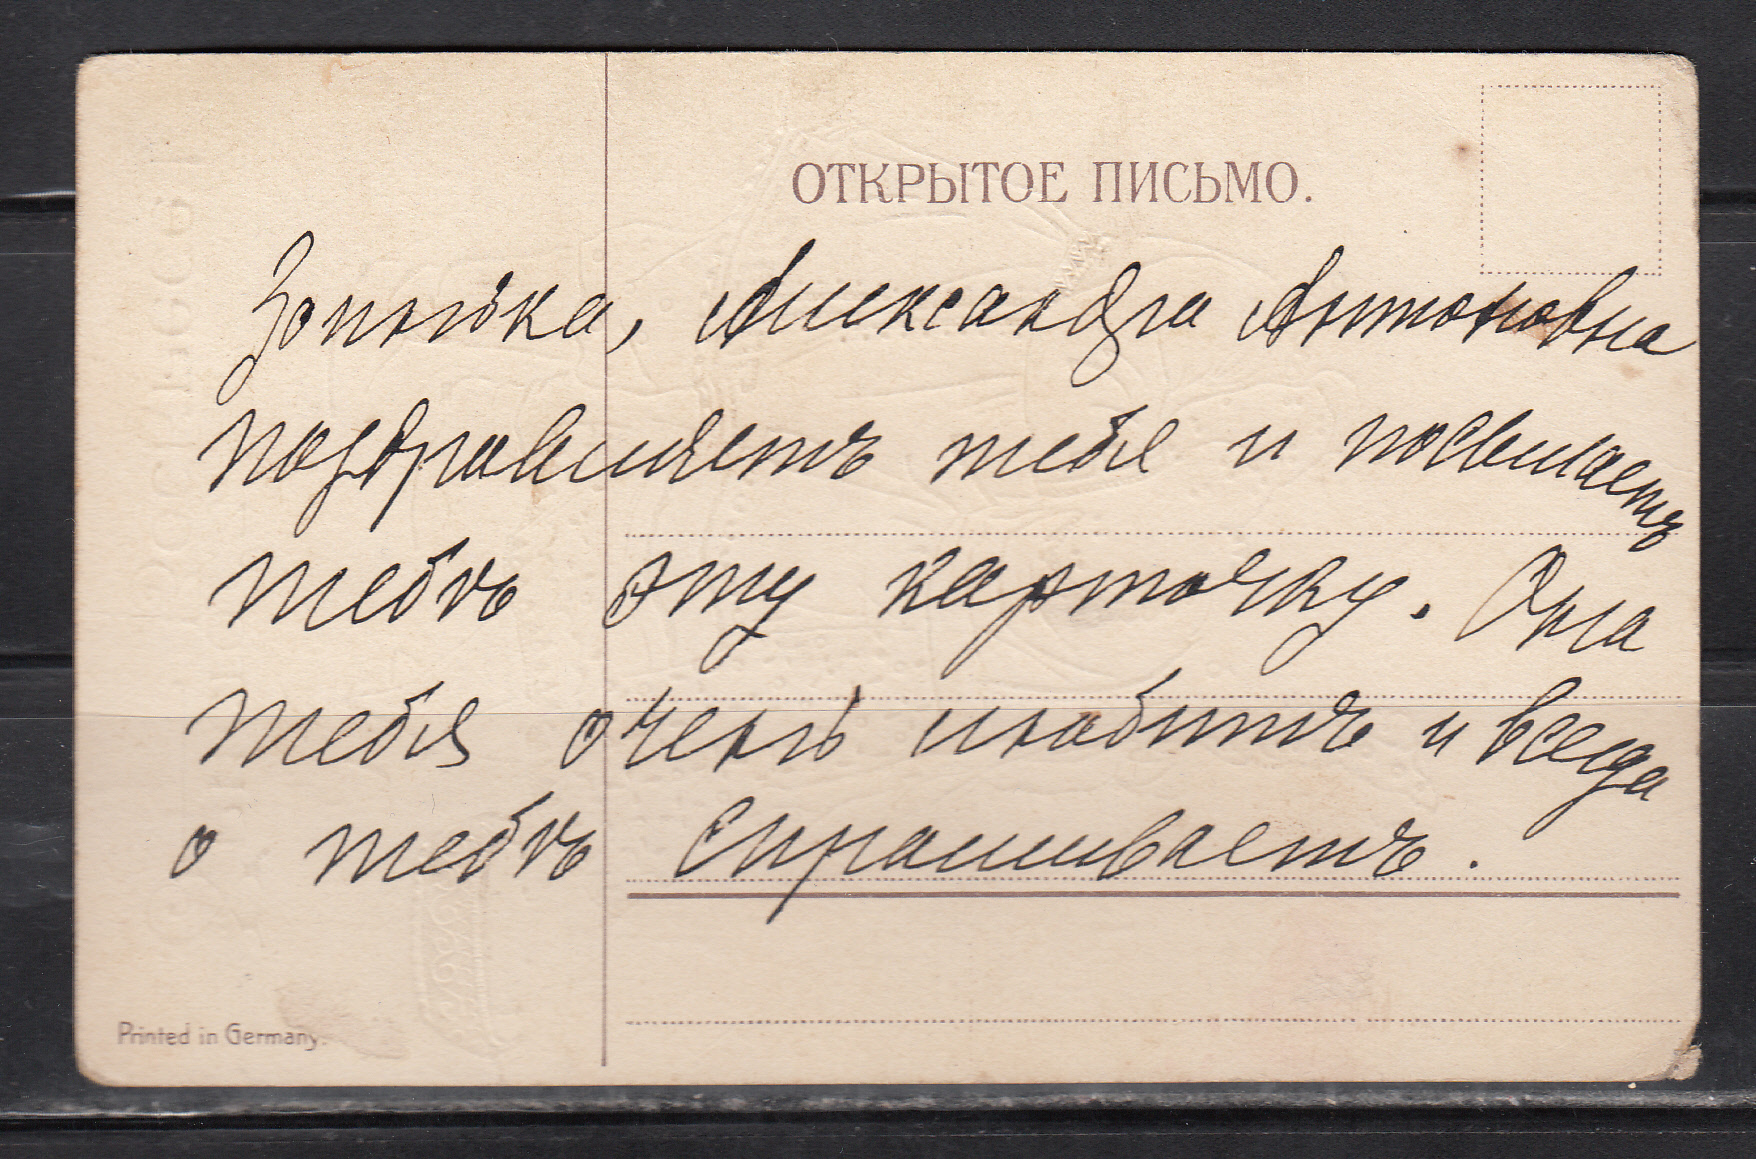 ОТКРЫТОЕ ПИСЬМО.
Зонюшка, Александра Антоновна
поздравляетъ тебя и посылаетъ
тебѣ эту карточку. Она
тебя очень любитъ и всегда
о тебѣ спрашиваетъ.
Printed in Germany.